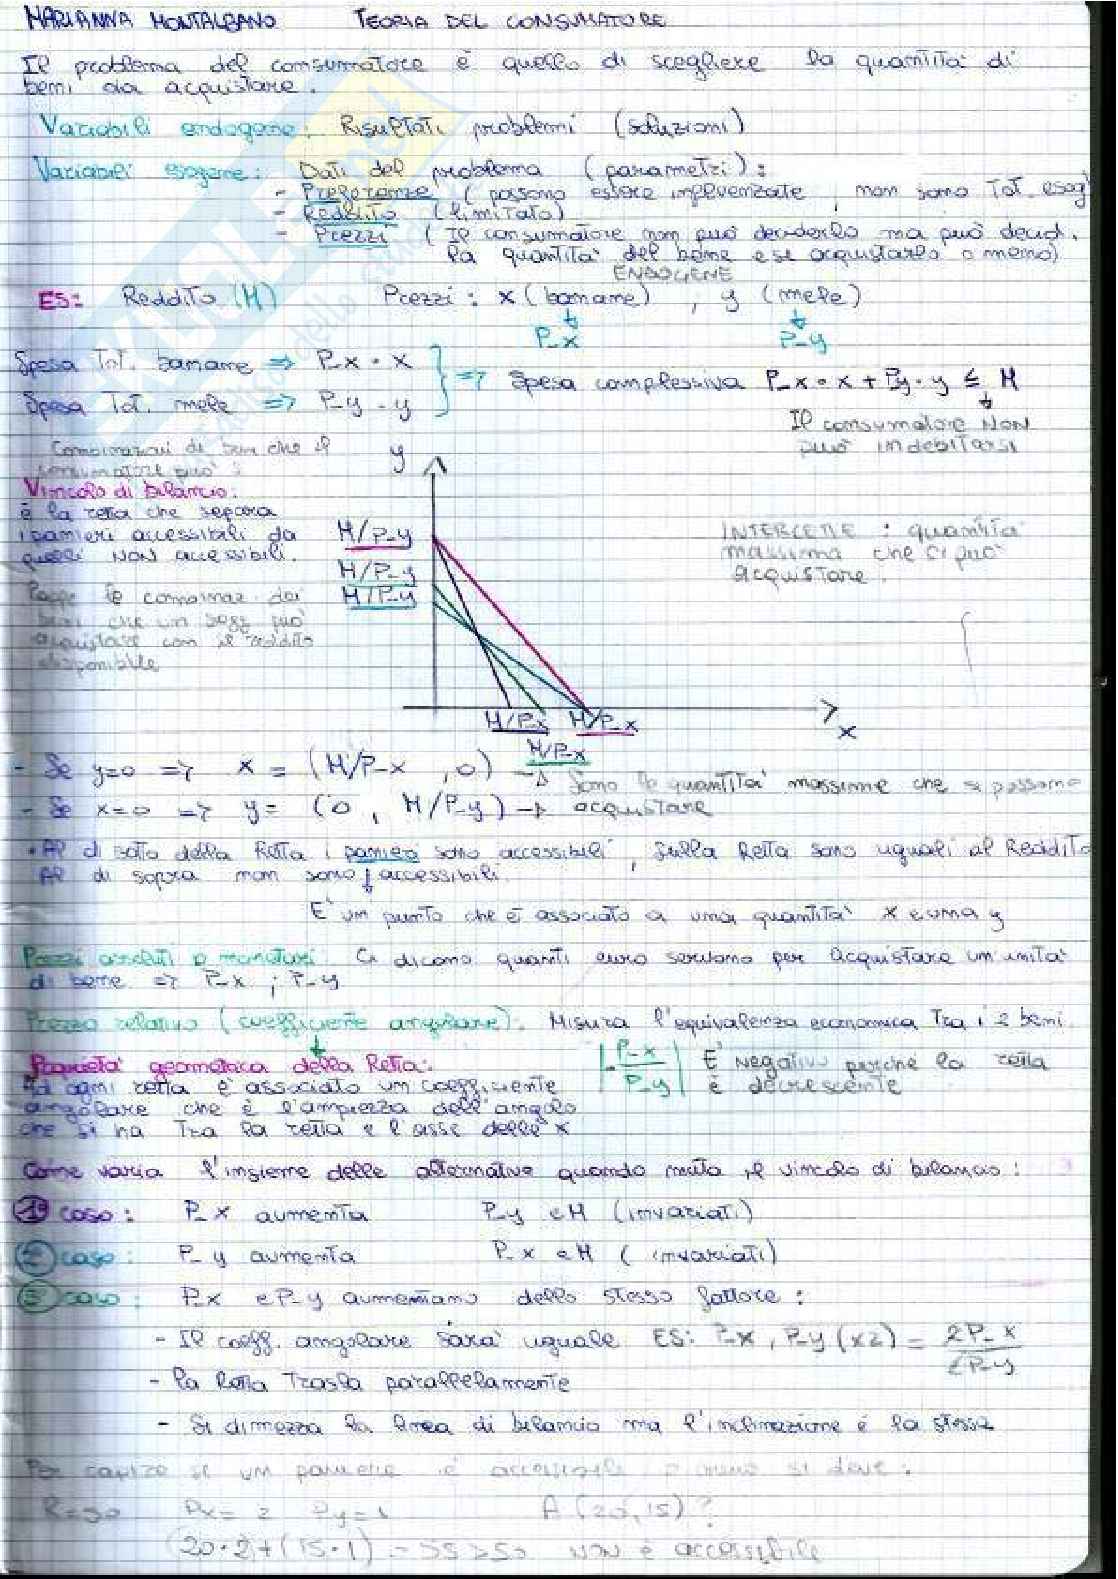 MARIANNA MONTALBANO TEORIA DEL CONSUMATORE
Il problema del consumatore è quello di scegliere la quantità di
beni da acquistare.
Variabili endogene: Risultati problemi (soluzioni)
Variabili esogene: Dati del problema (parametri):
- Preferenze (possono essere influenzate, non sono tot. esog)
- Reddito (limitato)
- Prezzi (Il consumatore non può deciderlo ma può decid.
la quantità del bene e se acquistarlo o meno)
ENDOGENE
ES: Reddito (M) Prezzi: x (banane), y (mele)
P_x P_y
Spesa Tot. banane => P_x · x
Spesa Tot. mele => P_y · y
=> Spesa complessiva P_x · x + P_y · y ≤ M
Il consumatore NON
può indebitarsi
Combinazioni di beni che il
consumatore può
Vincolo di bilancio:
è la retta che separa
i panieri accessibili da
quelli NON accessibili.
y
M/P_y
M/P_y
M/P_y
INTERCETTE: quantità
massima che si può
acquistare.
le combinaz. dei
beni che un sogg può
acquistare con il reddito
disponibile
M/P_x M/P_x
M/P_x
x
- Se y=0 => x = (M/P_x, 0) -> Sono le quantità massime che si possono
- Se x=0 => y = (0, M/P_y) -> acquistare
• Al di sotto della Retta i panieri sono accessibili, sulla Retta sono uguali al Reddito
Al di sopra non sono accessibili.
E' un punto che è associato a una quantità x e una y
Prezzi assoluti o monetari: Ci dicono quanti euro servono per acquistare un'unità
di bene => P_x ; P_y
Prezzo relativo (coefficiente angolare): Misura l'equivalenza economica tra i 2 beni
Proprietà geometrica della Retta:
Ad ogni retta è associato un coefficiente
angolare che è l'ampiezza dell'angolo
che si ha tra la retta e l'asse delle x
|-P_x/P_y| E' negativo perché la retta
è decrescente
Come varia l'insieme delle alternative quando muta il vincolo di bilancio:
1° caso: P_x aumenta P_y e M (invariati)
2° caso: P_y aumenta P_x e M (invariati)
3° caso: P_x e P_y aumentano dello stesso fattore:
- Il coeff. angolare sarà uguale ES: P_x, P_y (x2) = 2P_x/2P_y
- la Retta trasla parallelamente
- Si dimezza la linea di bilancio ma l'inclinazione è la stessa
Per capire se un paniere è accessibile o meno si deve:
R=50 Px= 2 Py=1 A (20,15)?
(20·2)+(15·1) = 55>50 NON è accessibile